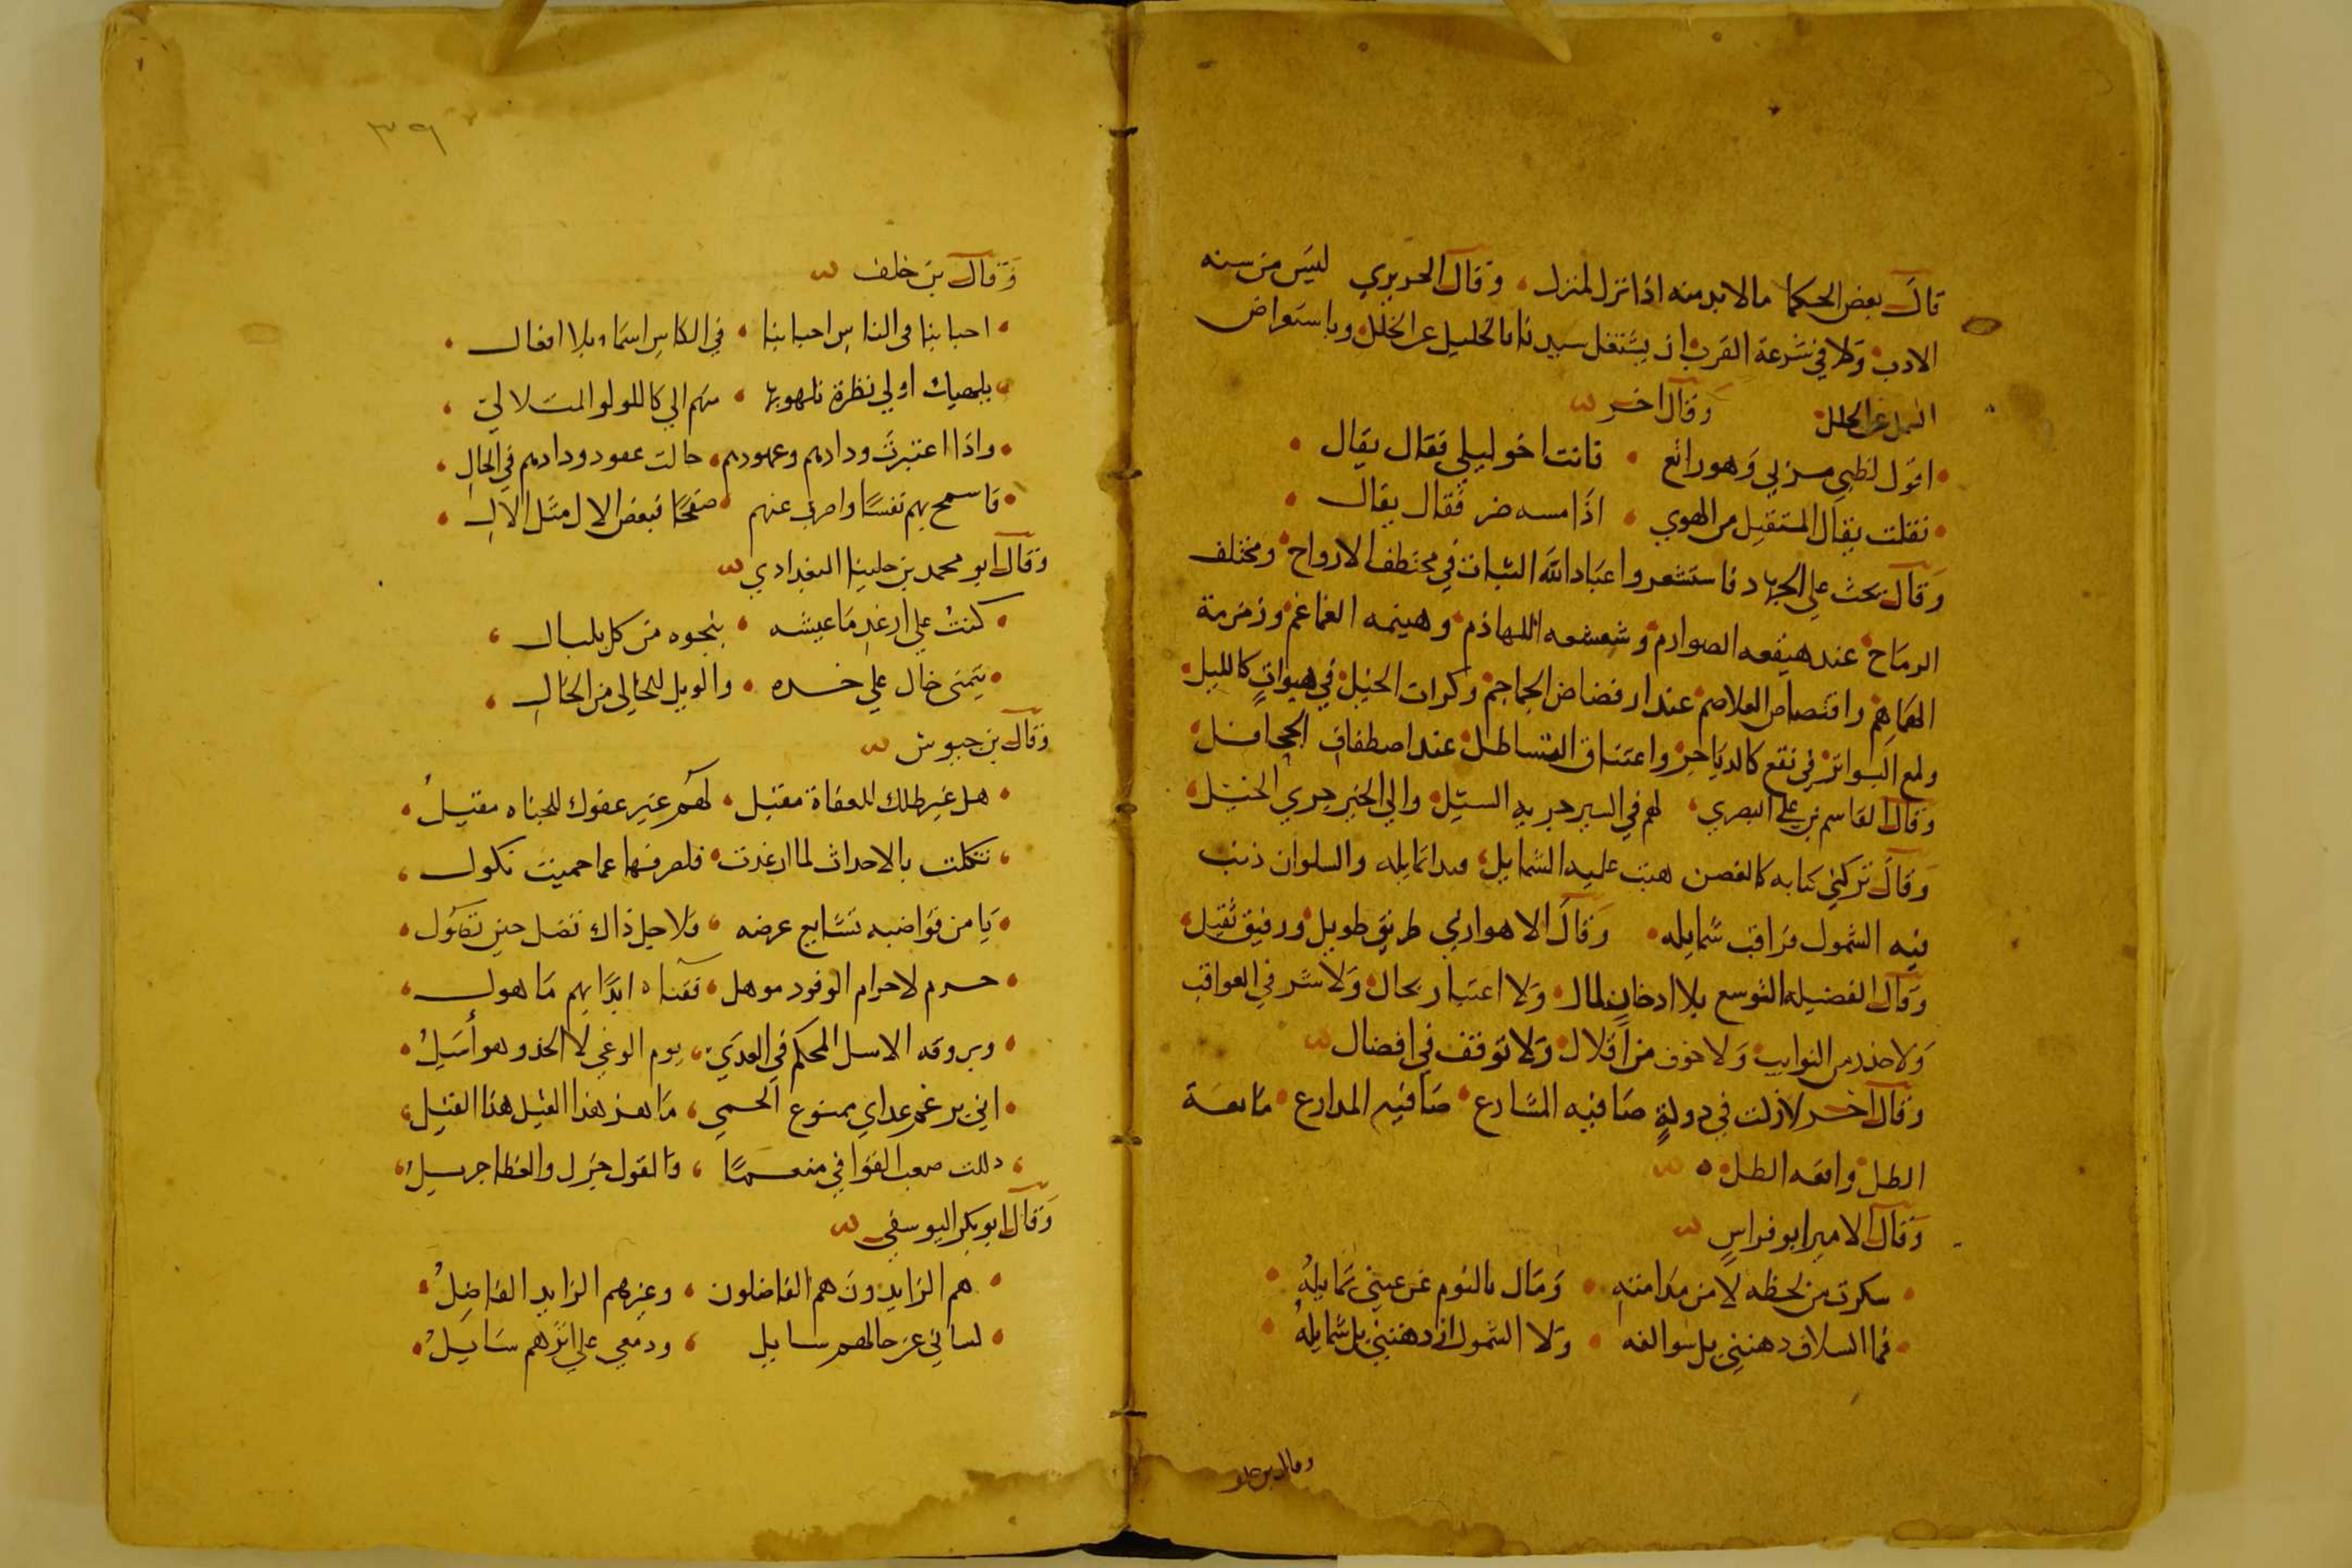 قال بعض الحكما ما لا بد منه اذا نزل لمنزل وقال الحريري ليس من سنه
الادب ولا في شرعة القرب ان يشتغل سيدنا بالخليل عن الخلل وباستعراض
عن الحلل وقال اخر
اقول لظبي مر بي وهو راتع فانت اخو ليلي فقال يقال
فقلت يقال المستقيل من الهوي اذا مسه ضر فقال يقال
وقال يحث علي الجهاد فاستشعروا عباد الله الثبات في مختطف الارواح ومختلف
الرماح عند هيقعه الصوارم وشعشعه اللهاذم وهينمه الغماغم وزمزمة
الهماهم واقتصاص الغلاصم عند ارفضاض الجماجم وكرات الخيل في هبوات كالليل
ولمع البواتر في نقع كالدياجر واعتناق القساطل عند اصطفاف الجحافل
وقال القاسم بن علي البصري لهم في السير جريه السيل والي الخير جري الخيل
وقال تركني كتابه كالغصن هبت عليه الشمايل تمايله والسلوان ذبت
فيه الشمول فراقت شمايله وقال الاهوازي طريق طويل ورفيق ثقيل
وقال الفضيله التوسع بلا ادخار لمال ولا اعتبار بحال ولا شر في العواقب
ولا حذر من النوايب ولا خوف من اقلال ولا توقف في افضال
وقال اخر لا زلت في دولة صافيه المشارع ضافيه المدارع مانعة
الطل وانعه الطل
وقال الامير ابو فراس
سكرت من لحظه لا من مدامته ومال بالنوم عن عيني تمايله
فما السلاف دهتني بل سوالفه ولا الشمول ازدهتني بل شمايله
وقال بن خلف
٣٩
وقال بن خلف
احبابنا في الناس احبابنا في الكاس اسماء بلا افعال
اولي نظرة تلهو بها منهم الي كاللولو المتلالي
واذا اعتبرت ودادهم وعهودهم حالت عهود ودادهم في الحال
فاسمح بهم نفسا واضرب عنهم صفحا فبعض الال مثل الال
وقال ابو محمد بن حلينا البغدادي
كنت علي ارغد ما عيشه بنجوه من كل بلبال
يتمني خال علي خده والويل للخالي من الخال
وقال بن حيوش
هل غير ظلك للعفاة مقيل لهم غير عفوك للجناه مقيل
تنكلت بالاحداث لما ارغدت فلصرفها عما حميت نكول
يا من قواضبه تشايع عرضه ولاجل ذاك تصل حين تصول
حرم لاحرام الوفود موهل ففناه ابدا بهم ماهول
وبروقه الاسل المحكم في العدي يوم الوغي لا الخد وهو أسيل
اني برغم عداي ممنوع الحمي ما بعد هذا القيل هذا القيل
ذللت صعب القوافي منعما والقول جزل والعطا جزيل
وقال ابو بكر اليوسفي
هم الزايدون هم الفاضلون وغيرهم الزايد الفاضل
لساني عن حالهم سايل ودمعي علي اثرهم سايل